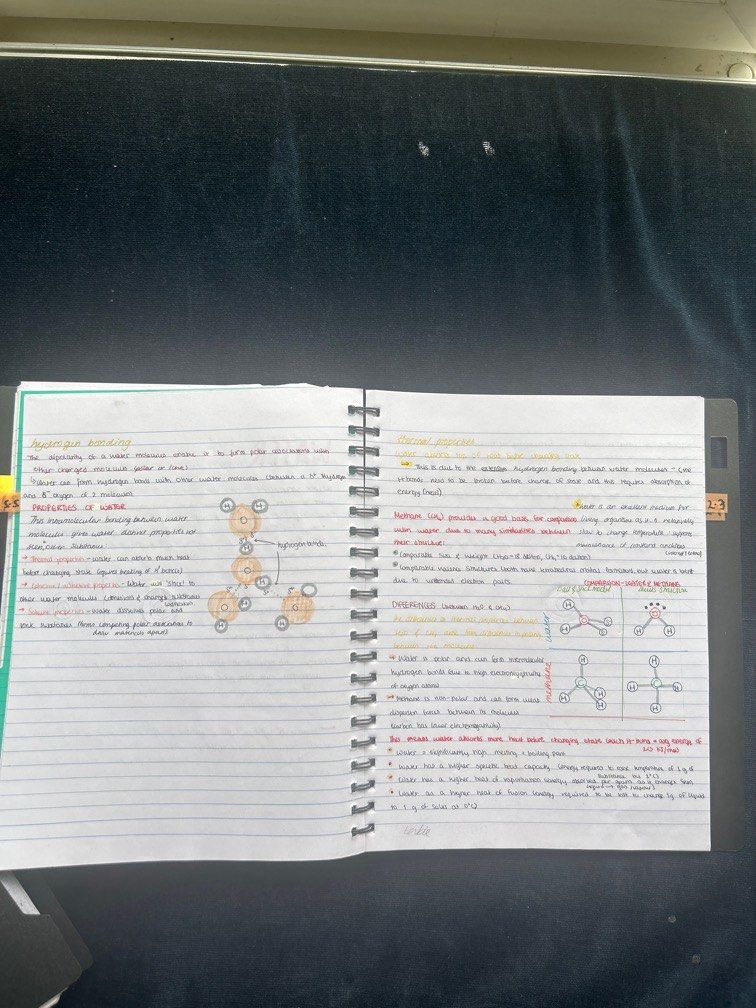 hydrogen bonding
The dipolarity of a water molecule enable it to form polar associations with
other charged molecule (polar or ionic)
↳ Water can form hydrogen bonds with other water molecules (between a δ⁺ hydrogen
and δ⁻ oxygen of 2 molecules)
PROPERTIES OF WATER
This intermolecular bonding between water
molecules gives water distinct properties not
seen other substance
→ Thermal properties - water can absorb much heat
before changing state (requires breaking of H bonds)
→ Cohesive / adhesive properties - Water will 'stick' to
other water molecules (cohesion) & charged substances
(adhesion)
→ Solvent properties - Water dissolves polar and
ionic substances (forms competing polar associations to
draw materials apart)
H H
O
H
hydrogen bonds
O
H H
O O
H H
5.5
thermal properties
water absorbs lots of heat before changing state
This is due to the extensive hydrogen bonding between water molecules - (the
H-bonds need to be broken before change of state and this requires absorption of
energy (heat)
Water is an excellent medium for
living organisms as it is relatively
slow to change temperature / supports
maintenance of constant conditions
Methane (CH₄) provides a good basis for comparison
with water due to many similarities between
their structure:
Comparable size & weight (H₂O = 18 dalton, CH₄ = 16 dalton)
Comparable valence structures (both have tetrahedral orbital formations, but water is bent
due to unbonded electron pairs
COMPARISON - WATER & METHANE
Ball & Stick model
Lewis Structure
water
H O H
H O H
methane
H C H H H
H H C H H
DIFFERENCES (between H₂O & CH₄)
The differences in thermal properties between
H₂O & CH₄ arise from differences in polarity
between the molecules
→ Water is polar and can form intermolecular
hydrogen bonds (due to high electronegativity
of oxygen atom)
→ Methane is non-polar and can form weak
dispersion forces between its molecules
(carbon has lower electronegativity)
This means water absorbs more heat before changing state (each H-bond = avg energy of
20 kJ/mol)
Water = significantly high melting & boiling point
Water has a higher specific heat capacity (energy required to raise temperature of 1g of
substance by 1°C)
Water has a higher heat of vaporisation (energy absorbed per gram as it changes from
liquid → gas (vapour))
Water as a higher heat of fusion (energy required to be lost to change 1g of liquid
to 1g of solid at 0°C)
2.3